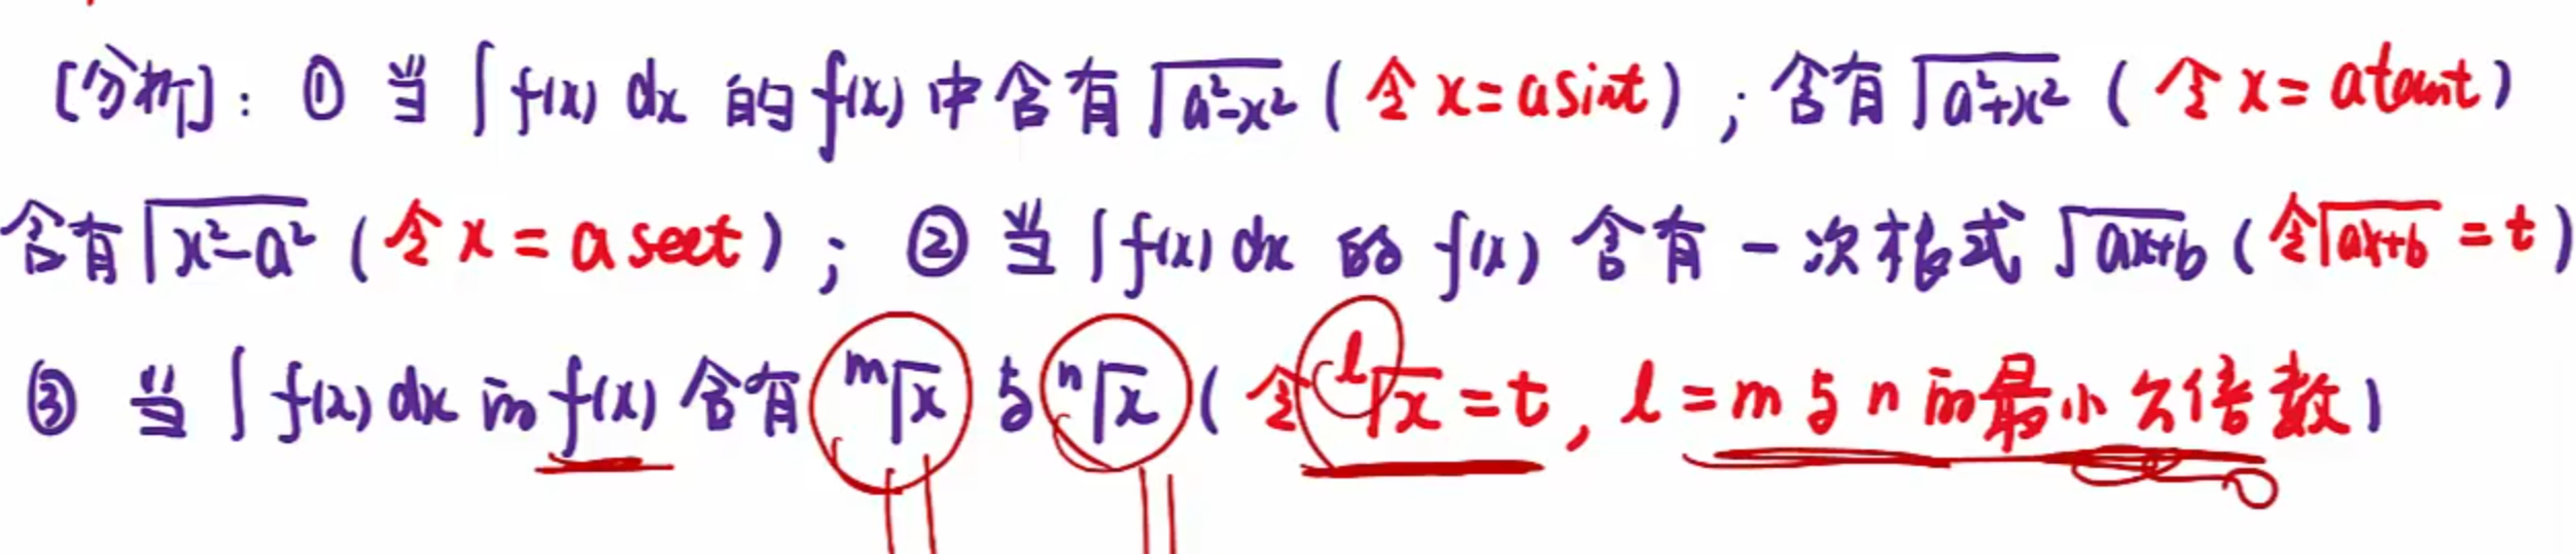 [分析]: ① 当 ∫ f(x) dx 的 f(x) 中含有 √(a²-x²) (令 x = a sint) ; 含有 √(a²+x²) (令 x = a tant)
含有 √(x²-a²) (令 x = a sect) ; ② 当 ∫ f(x) dx 的 f(x) 含有一次根式 √(ax+b) (令 √(ax+b) = t)
③ 当 ∫ f(x) dx 的 f(x) 含有 ᵐ√x 与 ⁿ√x (令 ˡ√x = t, l = m 与 n 的最小公倍数)